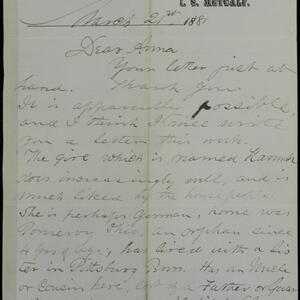 I. S. METCALF.
March 21st 188
Dear Anna
Your letter just at
hand. Thank you.
It is apparently possible,
and I think I will write
you a letter this week.
The girl which is named Hannah
does increasingly well, and is
much liked by the house people.
She is perhaps German, some was
Pomeroy Ohio, an orphan since
4 yrs of age, has lived with a sis
ter in Pittsburg Penn. Has an Uncle
or Cousin here, but of a Father or Guar